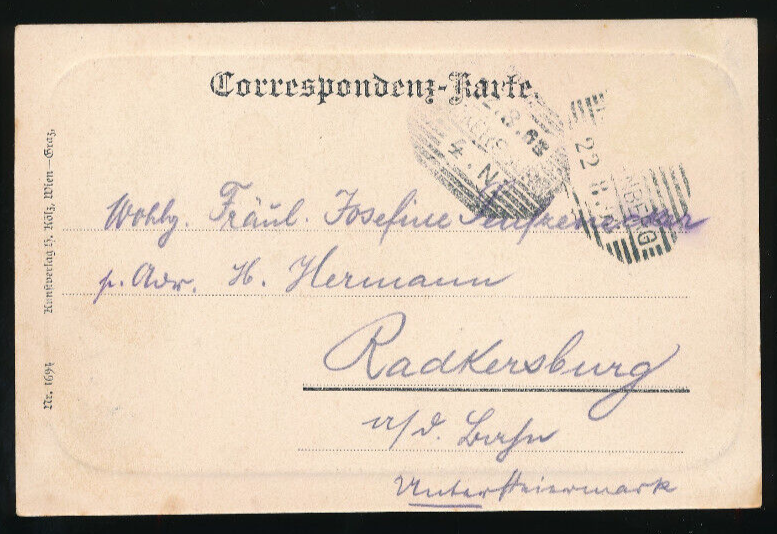 Correspondenz-Karte.
Wohlg. Fräul. Josefine
p. Adr. H. Hermann
Radkersburg
a/d. Bahn
Untersteiermark
Nr. 1694 Kunstverlag H. Kölz, Wien–Graz.
22